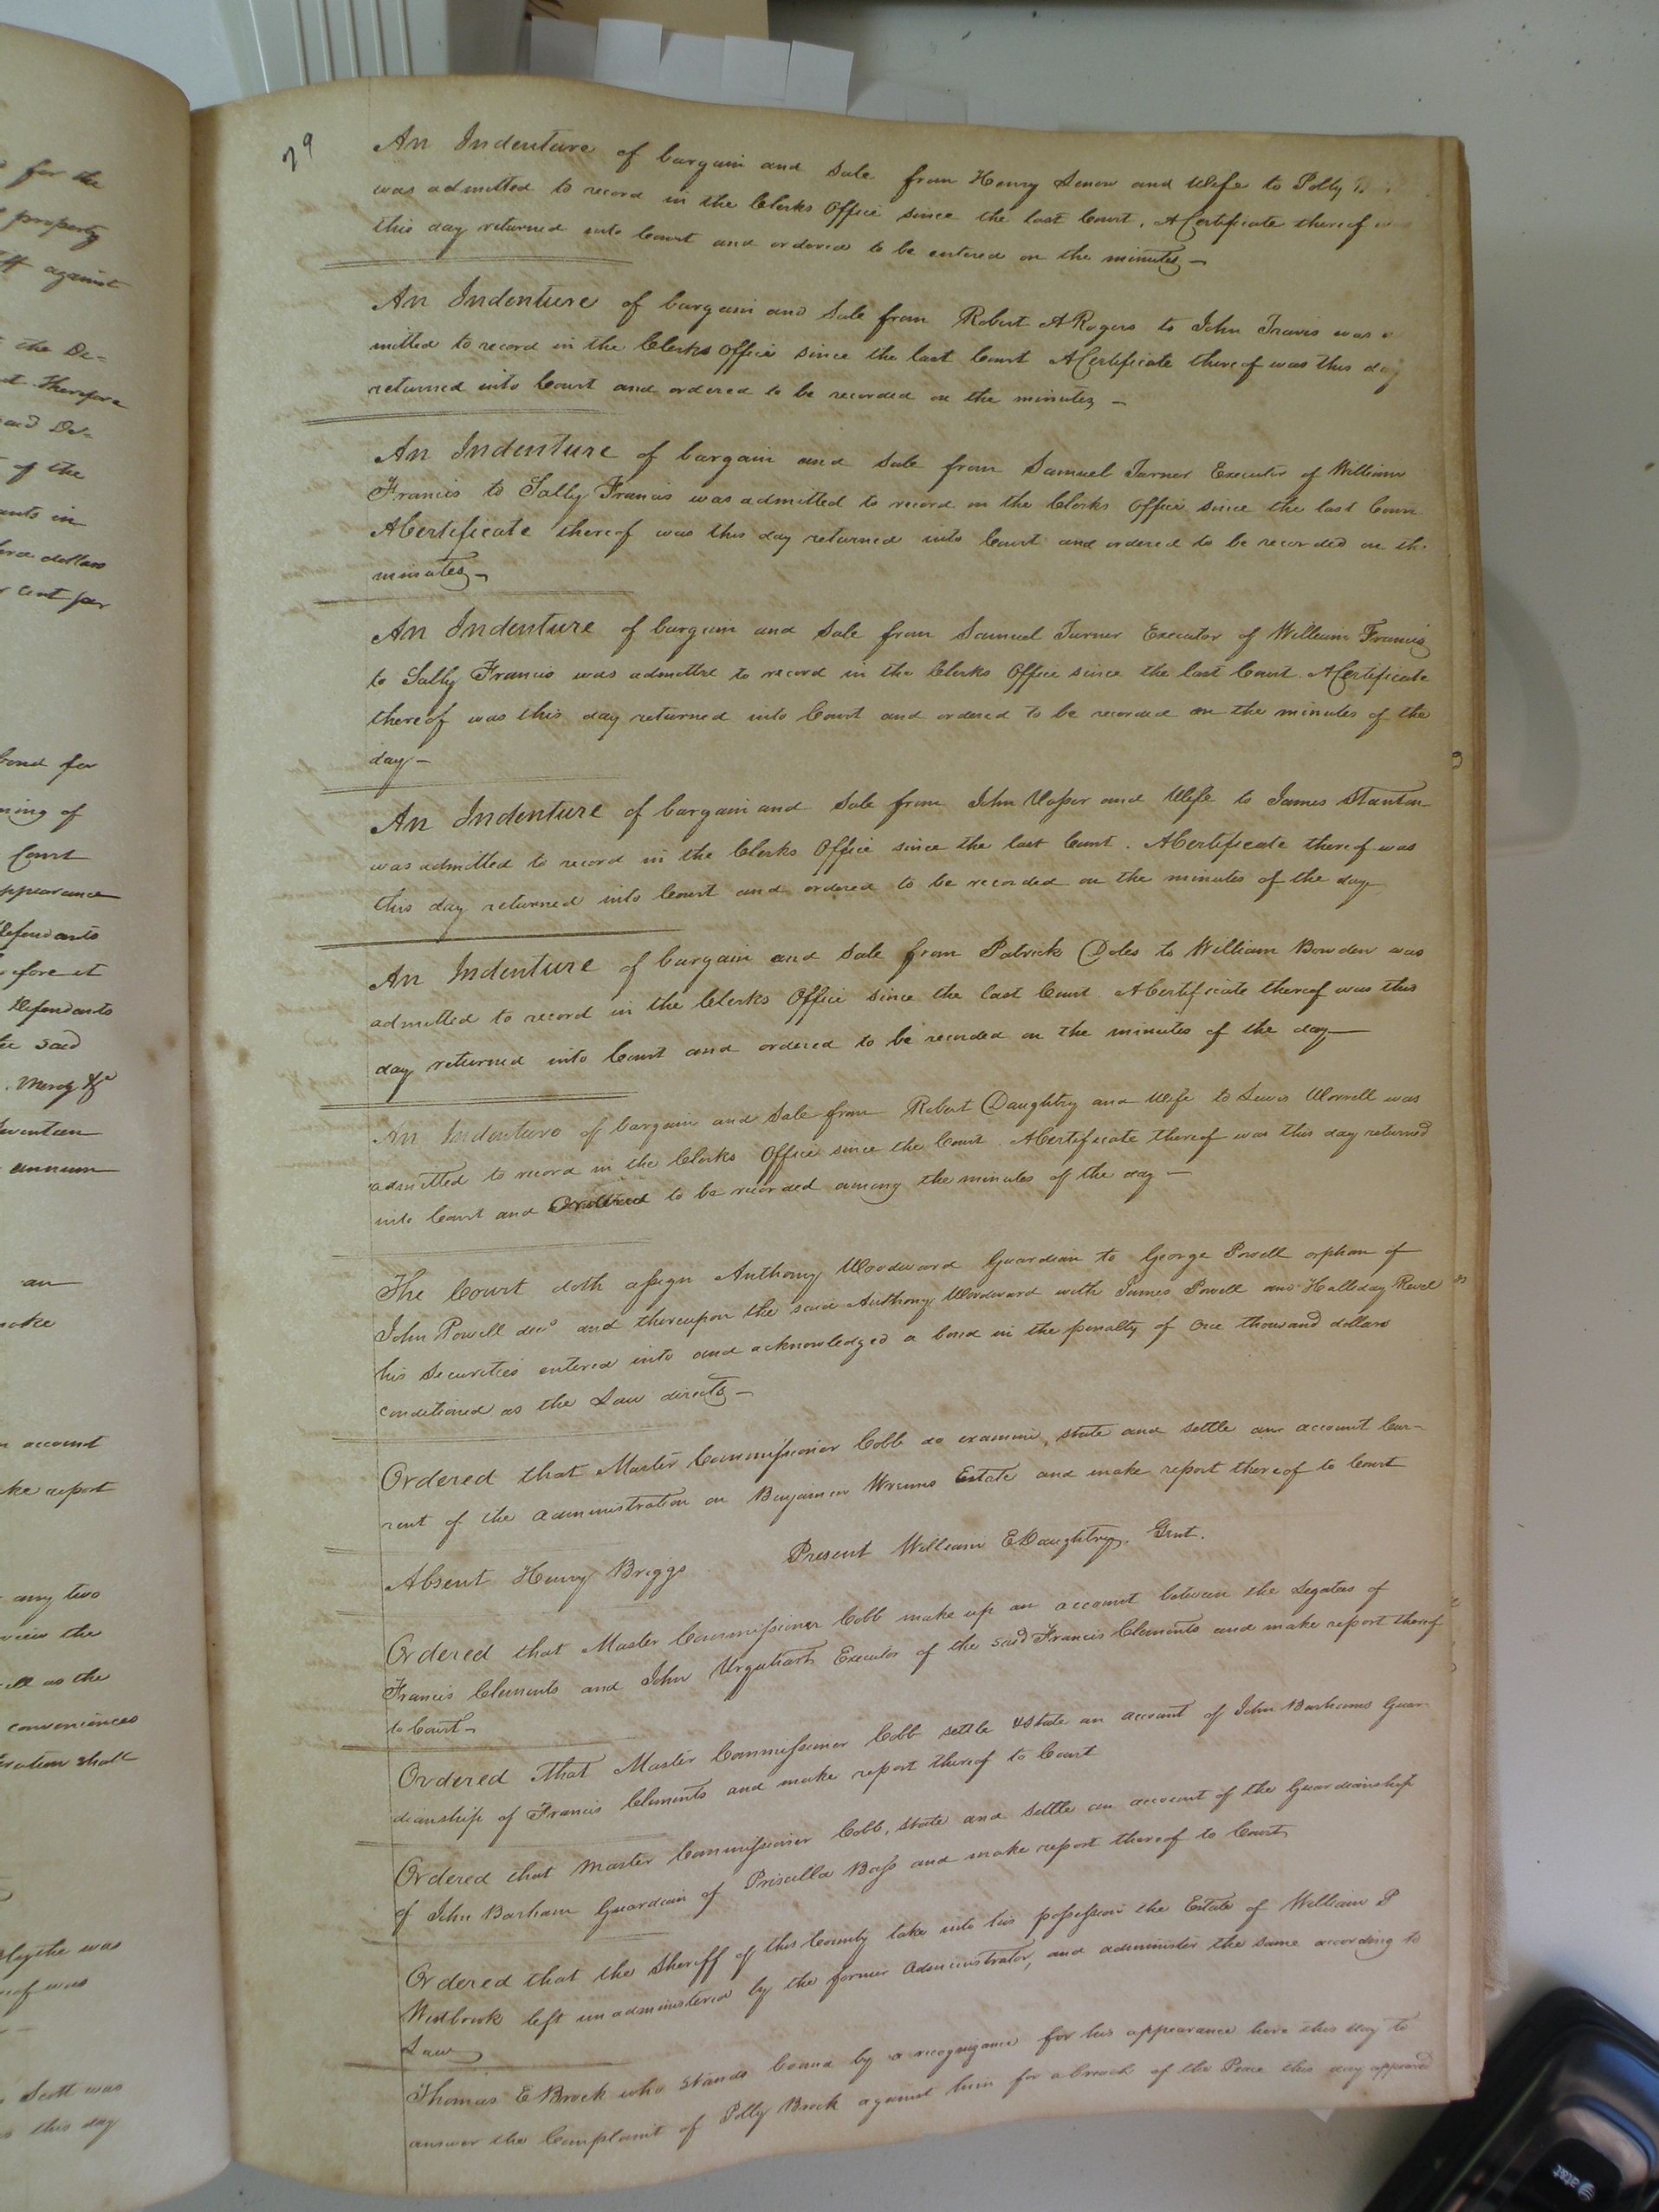 for the
property
against
the De=
Therefore
and De=
of the
in
dollars
cent per
bond for
ming of
Court
appearance
Defendants
fore it
Defendants
said
Mercy &c
seventeen
annum
an
account
make report
any two
view the
as the
conveniences
shall
was
was
Scott was
this day
29
An Indenture of bargain and Sale from Henry Senow and Wife to Polly
was admitted to record in the Clerks Office since the last Court. A Certificate thereof
this day returned into Court and ordered to be entered on the minutes —
An Indenture of bargain and Sale from Robert A Rogers to John Travis was
mitted to record in the Clerks Office since the last Court A Certificate thereof was this day
returned into Court and ordered to be recorded on the minutes —
An Indenture of bargain and Sale from Samuel Turner Executor of William
Francis to Sally Francis was admitted to record in the Clerks Office since the last Court
A Certificate thereof was this day returned into Court and ordered to be recorded on the
minutes —
An Indenture of bargain and Sale from Samuel Turner Executor of William Francis
to Sally Francis was admitted to record in the Clerks Office since the last Court. A Certificate
thereof was this day returned into Court and ordered to be recorded on the minutes of the
day —
An Indenture of bargain and Sale from John Vasser and Wife to James Stanton
was admitted to record in the Clerks Office since the last Court. A Certificate thereof was
this day returned into Court and ordered to be recorded on the minutes of the day
An Indenture of bargain and Sale from Patrick Doles to William Bowden was
admitted to record in the Clerks Office since the last Court. A Certificate thereof was this
day returned into Court and ordered to be recorded on the minutes of the day —
An Indenture of bargain and Sale from Robert Daughtry and Wife to Lewis Worrell was
admitted to record in the Clerks Office since the Court. A Certificate thereof was this day returned
into Court and Ordered to be recorded among the minutes of the day —
The Court doth assign Anthony Woodward Guardian to George Powell orphan of
John Powell decd and thereupon the said Anthony Woodward with James Powell and Halleday Revel
his Securities entered into and acknowledged a bond in the penalty of One thousand dollars
conditioned as the Law directs —
Ordered that Master Commissioner Cobb do examine, state and settle an account Cur-
rent of the administration on Benjamin Wrenns Estate and make report thereof to Court
Absent Henry Briggs Present William E Daughtry. Gent.
Ordered that Master Commissioner Cobb make up an account between the Legatees of
Francis Clements and John Urquhart Executor of the said Francis Clements and make report thereof
to Court —
Ordered that Master Commissioner Cobb settle & State an account of John Barhams Guar-
dianship of Francis Clements and make report thereof to Court
Ordered that Master Commissioner Cobb, state and settle an account of the Guardianship
of John Barham Guardian of Priscilla Bass and make report thereof to Court
Ordered that the Sheriff of this County take into his possession the Estate of William P
Westbrook left unadministered by the former Administrator, and administer the same according to
Law
Thomas E Brock who stands bound by a recognizance for his appearance here this day to
answer the Complaint of Polly Brock against him for a breach of the Peace this day appeared
at&t